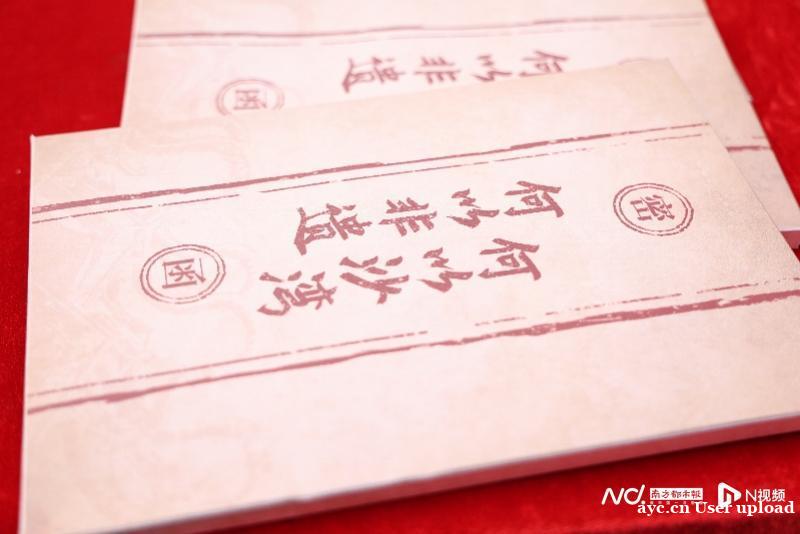 何以非遗
函
密
何以非遗
何以沙湾
函
南方都市报
N视频
ayc.cn User upload